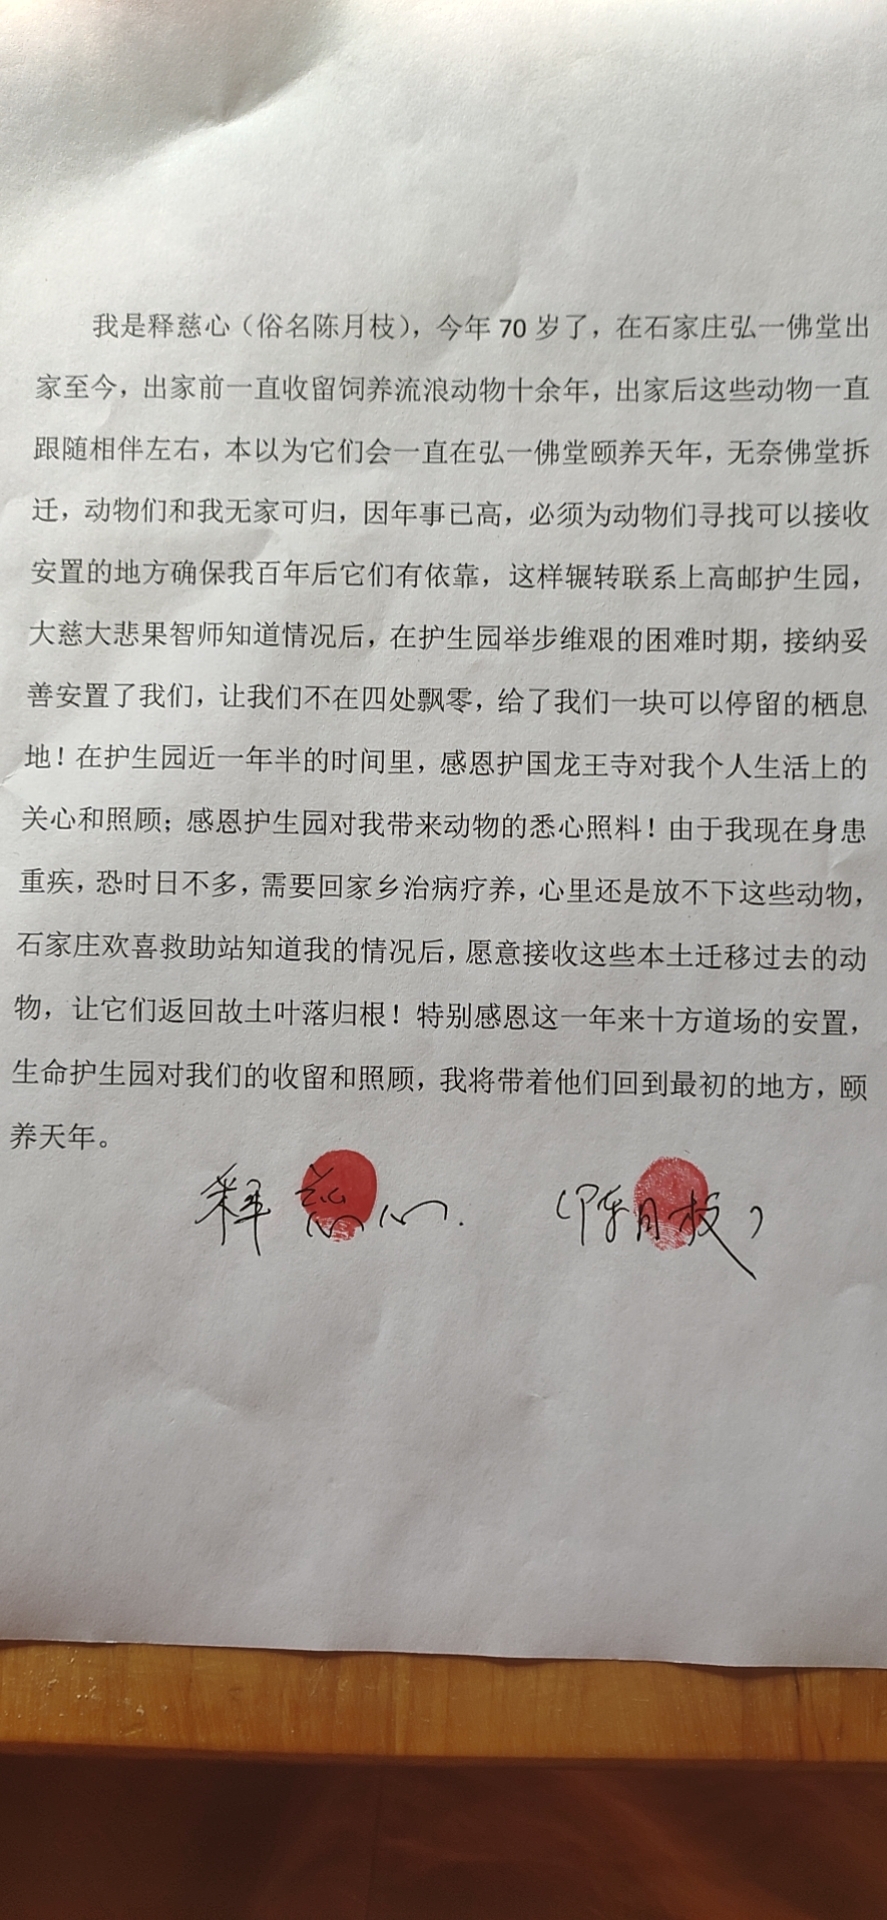 我是释慈心（俗名陈月枝），今年 70 岁了，在石家庄弘一佛堂出
家至今，出家前一直收留饲养流浪动物十余年，出家后这些动物一直
跟随相伴左右，本以为它们会一直在弘一佛堂颐养天年，无奈佛堂拆
迁，动物们和我无家可归，因年事已高，必须为动物们寻找可以接收
安置的地方确保我百年后它们有依靠，这样辗转联系上高邮护生园，
大慈大悲果智师知道情况后，在护生园举步维艰的困难时期，接纳妥
善安置了我们，让我们不在四处飘零，给了我们一块可以停留的栖息
地！在护生园近一年半的时间里，感恩护国龙王寺对我个人生活上的
关心和照顾；感恩护生园对我带来动物的悉心照料！由于我现在身患
重疾，恐时日不多，需要回家乡治病疗养，心里还是放不下这些动物，
石家庄欢喜救助站知道我的情况后，愿意接收这些本土迁移过去的动
物，让它们返回故土叶落归根！特别感恩这一年来十方道场的安置，
生命护生园对我们的收留和照顾，我将带着他们回到最初的地方，颐
养天年。
释慈心.（陈月枝）